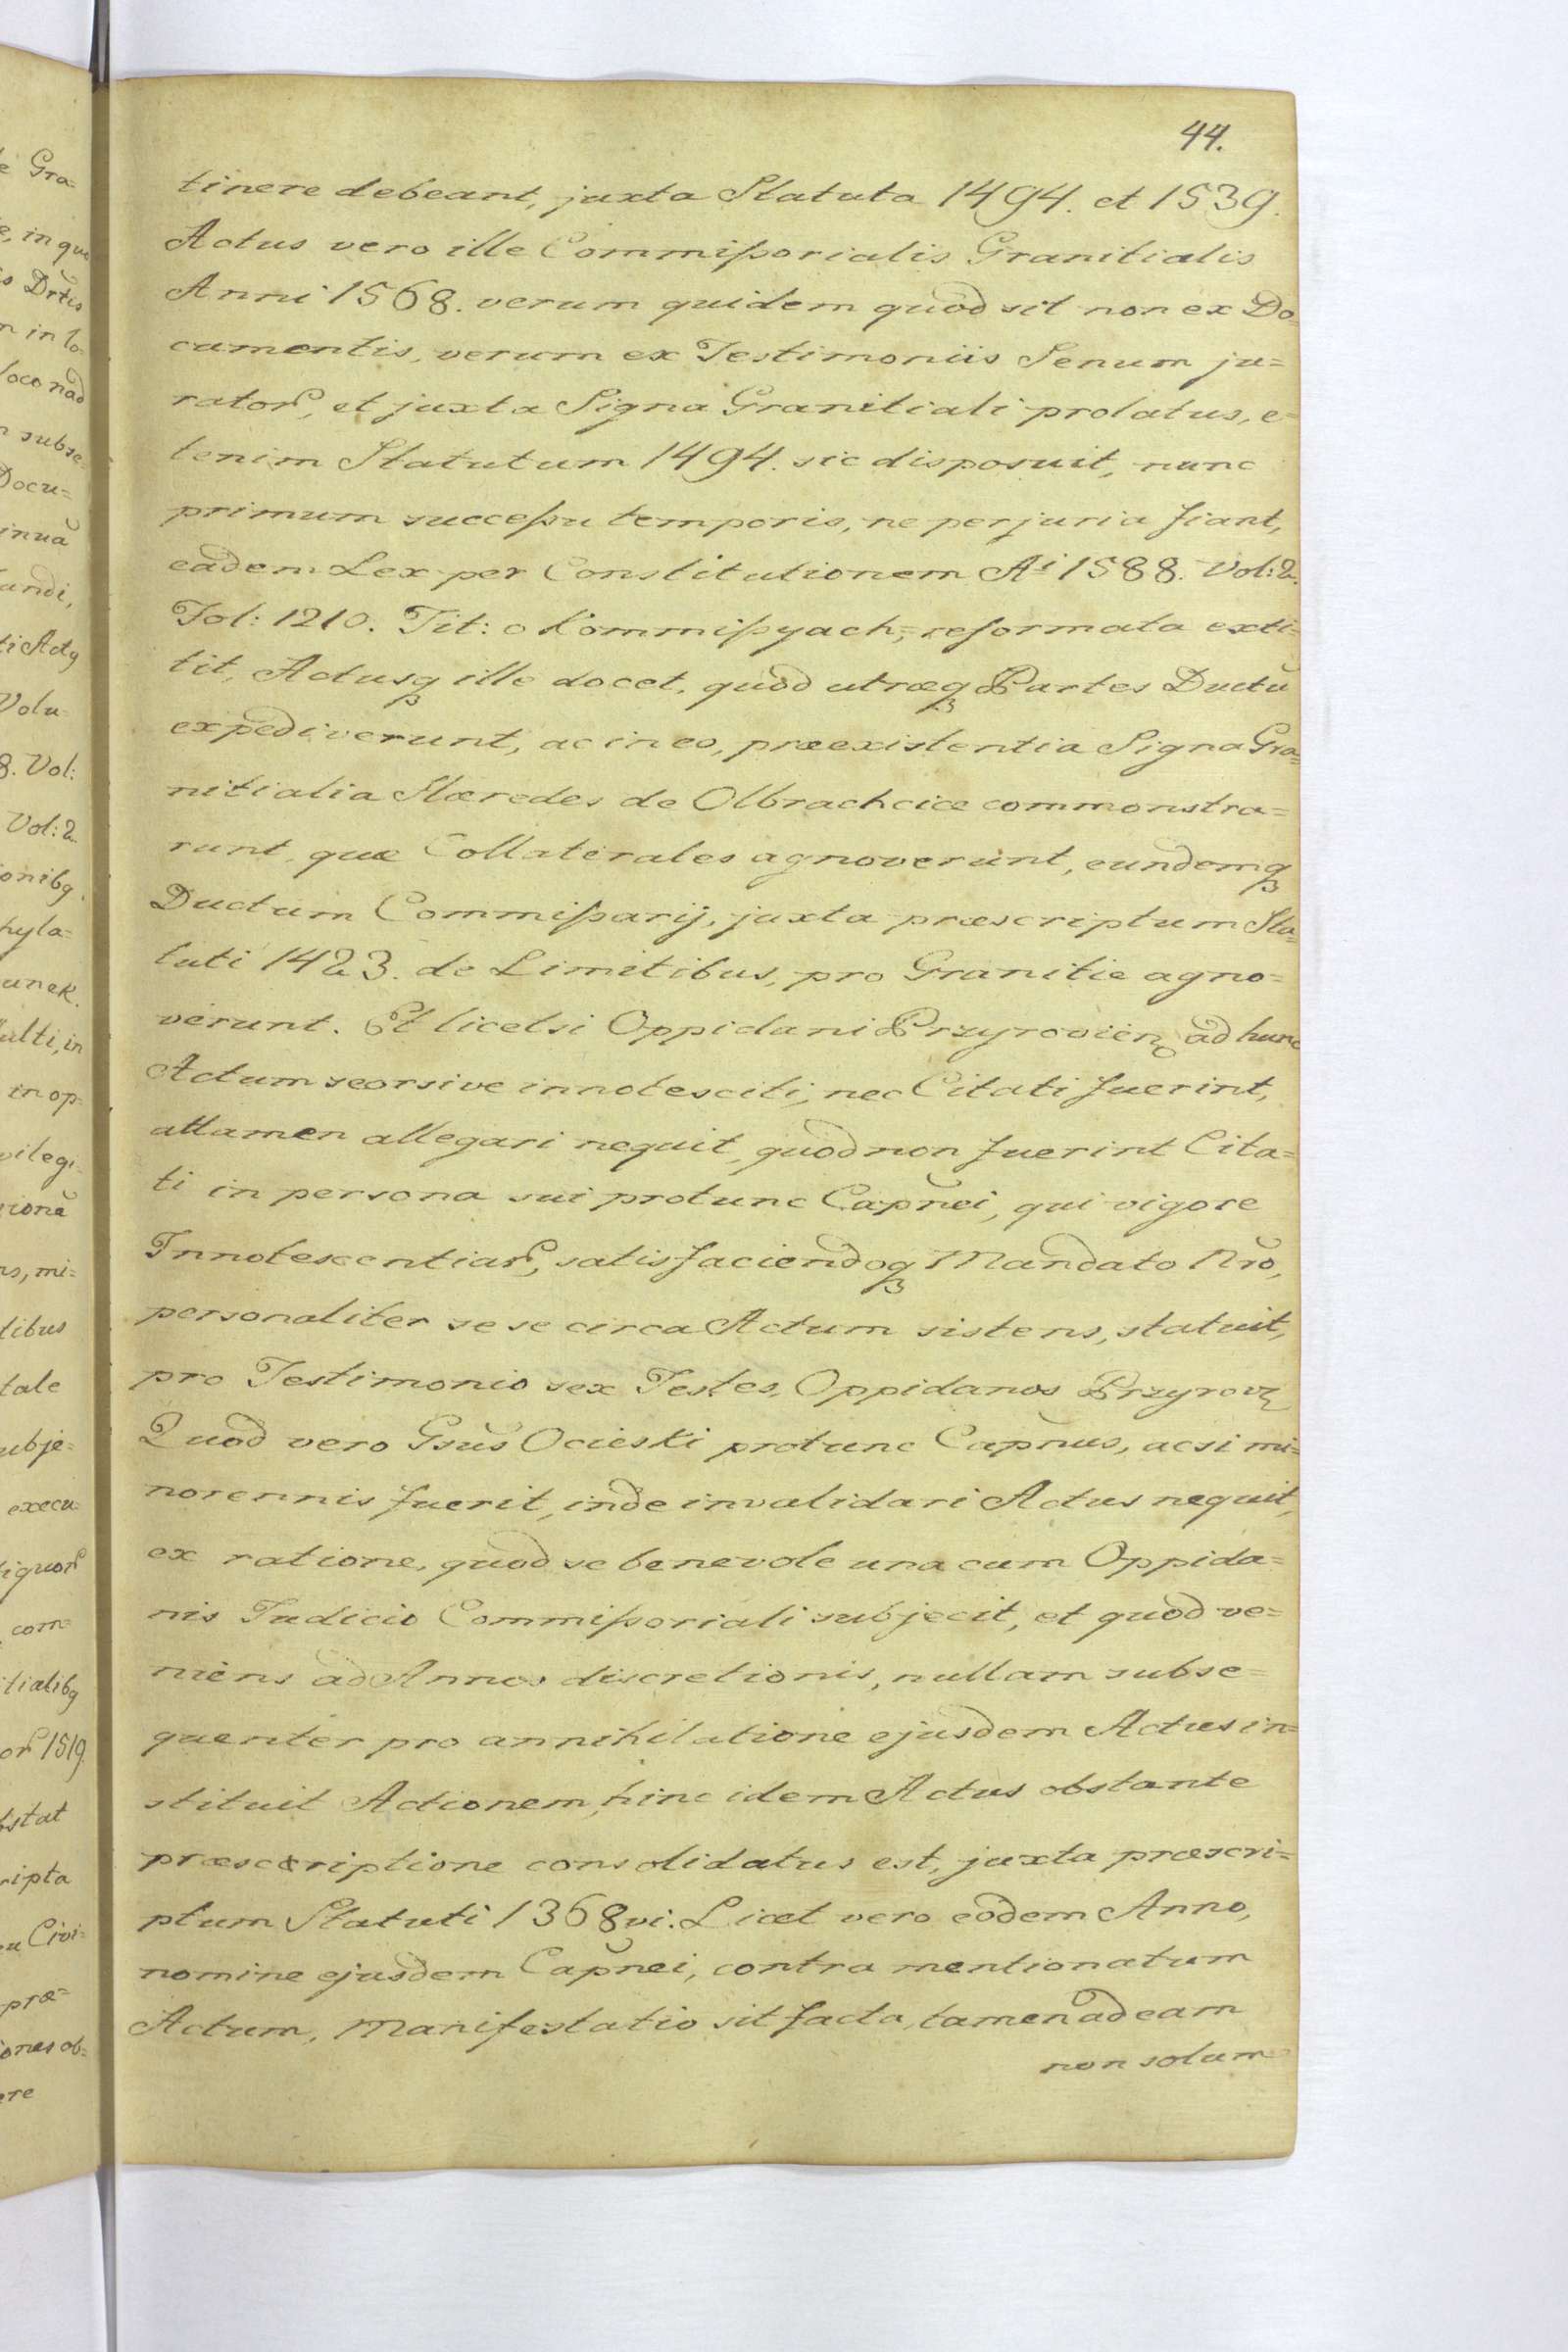 44.
tinere debeant, juxta Statuta 1494. et 1539.
Actus vero ille Commißorialis Granitialis
Anni 1568. verum quidem quod sit non ex Do=
cumentis, verum ex Testimoniis Senum ju=
rator, et juxta Signa Granitiali prolatus, e=
tenim Statutum 1494. sic disposuit, nunc
primum succeßu temporis, ne perjuria fiant,
eadem Lex per Constitutionem Ai 1588. Vol: 2.
Fol: 1210. Tit: o Kommißyach, reformata exti=
tit, Actusq ille docet, quod utræq Partes Ductũ
expediverunt, ac in eo, præexistentia Signa Gra=
nitialia Hæredes de Olbrachcice commonstra=
runt, quæ Collaterales agnoverunt, eundemq
Ductum Commißarij, juxta præscriptum Sta=
tuti 1423. de Limitibus, pro Granitie agno=
verunt. Et licetsi Oppidani Przyrovien, ad hunc
Actum seorsive innotesciti, nec Citati fuerint,
attamen allegari nequit, quod non fuerint Cita=
ti in persona sui protunc Capnei, qui vigore
Innotescentiar, satisfaciendoq Mandato Nro,
personaliter sese circa Actum sistens, statuit,
pro Testimonio sex Testes, Oppidanos Przyrov
Quod vero Gsus Ocieski protunc Capnus, acsi mi=
norennis fuerit, inde invalidari Actus nequit,
ex ratione, quod se benevole una cum Oppida=
nis Judicio Commißoriali subjecit, et quod ve=
niens ad Annos discretionis, nullam subse=
quenter pro annihilatione ejusdem Actus in=
stituit Actionem, hinc idem Actus obstante
præscriptione consolidatus est, juxta præscri=
ptum Statuti 1368vi. Licet vero eodem Anno,
nomine ejusdem Capnei, contra mentionatum
Actum, Manifestatio sit facta, tamen ad eam
non solum
e Gra=
e, in quo
s Drtis
n in lo=
loco nad
n subse=
Docu=
inuã
andi,
ti Actq
Volu
8. Vol:
Vol: 2.
onibq
hyla=
unek.
ulti, in
in op=
vilegi=
ionẽ
ns, mi=
tibus
tale
ubje=
execu=
iquor
com=
itialibq
or 1519
bstat
ripta
eu Civi=
præ=
ones ob=
ere